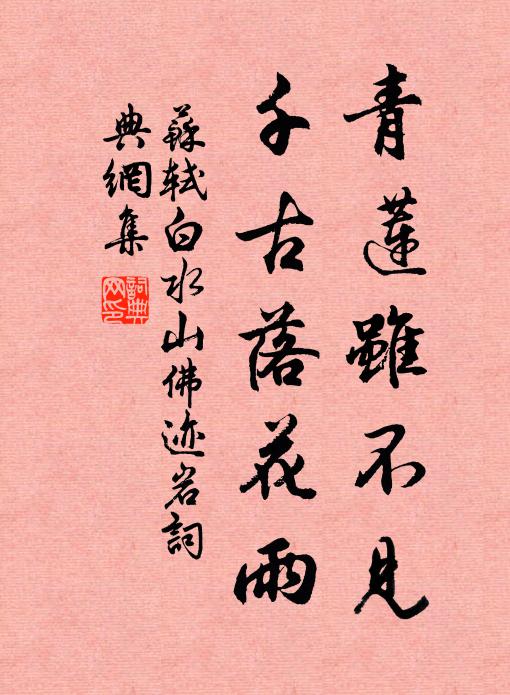 青蓮雖不見
千古落花雨
蘇軾白水山佛迹岩詞
典網集
詞典網印